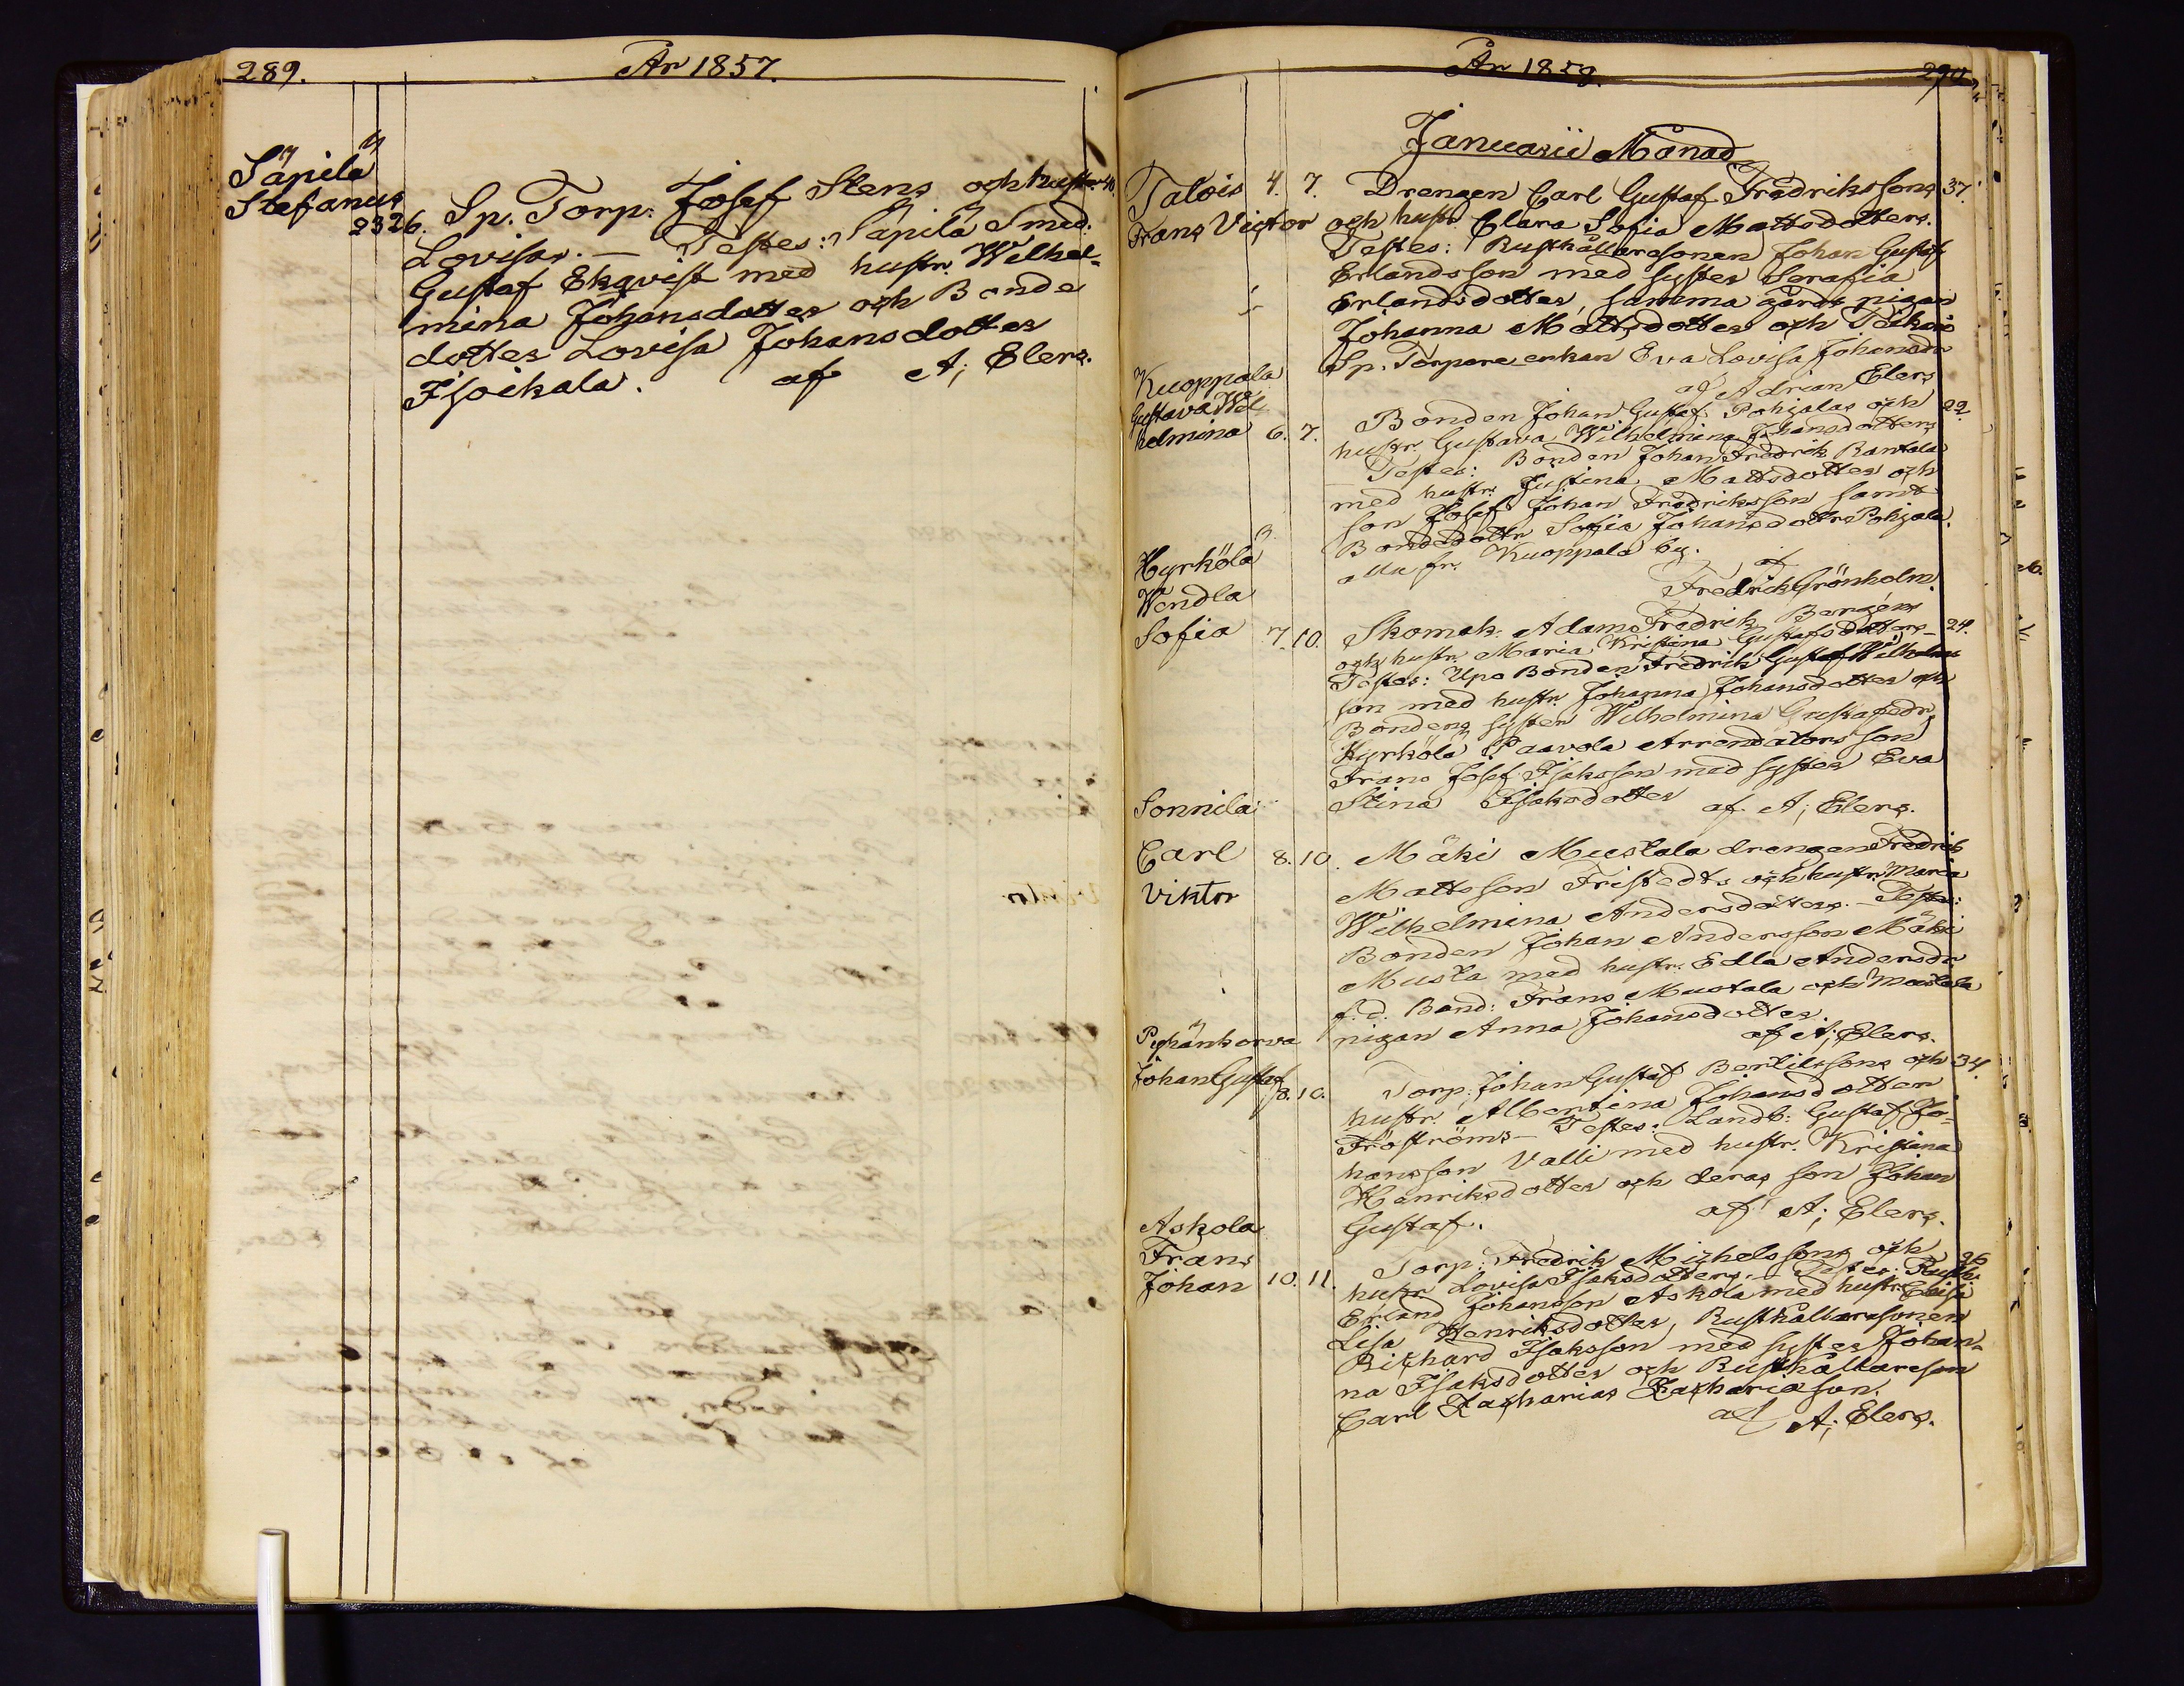 289.
År 1857.
Säpilä
Stefanus 23 26. Sp. Torp. Josef Stens och hustr. 40.
Lovisas. — Testes: Säpilä Smed:
Gustaf Ekqvist med hustr. Wilhel-
mina Johansdotter och Bonde
dotter Lovisa Johansdotter
Isoikala. af A; Elers.
År 1858.
290.
Januarii Månad
Talois 4. 7. Drengen Carl Gustaf Fredrikssons 37.
Frans Victor och hustr Clara Sofia Mattsdotters.
Testes: Rusthållaresonen Johan Gustaf
Erlandsson med syster Serafia
Erlandsdotter, samma gårds pigan
Johanna Mattsdotter och
Sp. Torpare enkan Eva Lovisa Johansdr
af Adrian Elers
Kuoppala
Gustava Wil
helmina 6. 7. Bonden Johan Gustaf Pohjalas och 22.
hustr. Gustava Wilhelmina Johansdotters
Testes: Bonden Johan Fredrik Rantala
med hustr. Justina Mattsdotter och
son Josef Johan Fredriksson samt
Bondedottr Sofia Johansdottr Pohjala.
alla fr. Kuoppala by. af
Fredrik Grönholm
Hyrkölä
Wendla
Sofia 7. 10. Skomak. Adam Fredrik Bergens
och hustr. Maria Kristina Gustafsdotters — 24.
Testes: Upo Bonden Fredrik Gustaf Wilhelms
son med hustr. Johanna Johansdotter och
Bondens syster Wilhelmina Gustafsdr
Hyrkölä Paavola Arrendators son
Frans Josef Isaksson med syster Eva
Stina Isaksdotter af A; Elers.
Sonnila
Carl 8. 10. Mäki Mustala drengen Fredrik
Viktor Mattsson Fristedts och hustr. Maria
Wilhelmina Andersdotters. — Testes:
Bonden Johan Andersson Mäki
Musta med hustr. Edla Andersdr
f.d. Bond: Frans Mustala och Mustala
pigan Anna Johansdotter.
af A; Elers.
Pyhänkorva
Johan Gustaf 8. 10. Torp. Johan Gustaf Bertilssons och 34.
hustr. Albertina Johansdotter
Fröströms — Testes: Landb: Gustaf Jo-
hansson Valli med hustr. Kristina
Henriksdotter och deras son Johan
Gustaf. af A; Elers.
Askola
Frans
Johan 10. 11. Torp. Fredrik Michelssons och 26
hustr Lovisa Isaksdotters. — Testes: Rusth.
Erland Johansson Askola med hustr.
Lisa Henriksdotter, Rusthållaresonen
Richard Isaksson med syster Johan-
na Isaksdotter och Rusthållareson
Carl Zacharias Zachariasson.
af A; Elers.